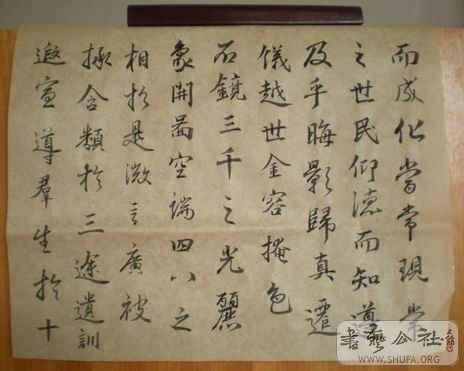 而成化當常現常
之世民仰德而知遵
及乎晦影歸真遷
儀越世金容掩色
不鏡三千之光麗
象開圖空端四八之
相於是微言廣被
拯含類於三途遺訓
遐宣導羣生於十
書藝公社
WWW.SHUFA.ORG